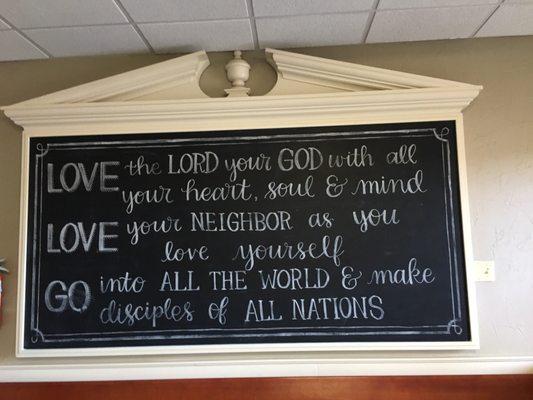 LOVE the LORD your GOD with all
your heart, soul & mind
LOVE your NEIGHBOR as you
love yourself
GO into ALL THE WORLD & make
disciples of ALL NATIONS